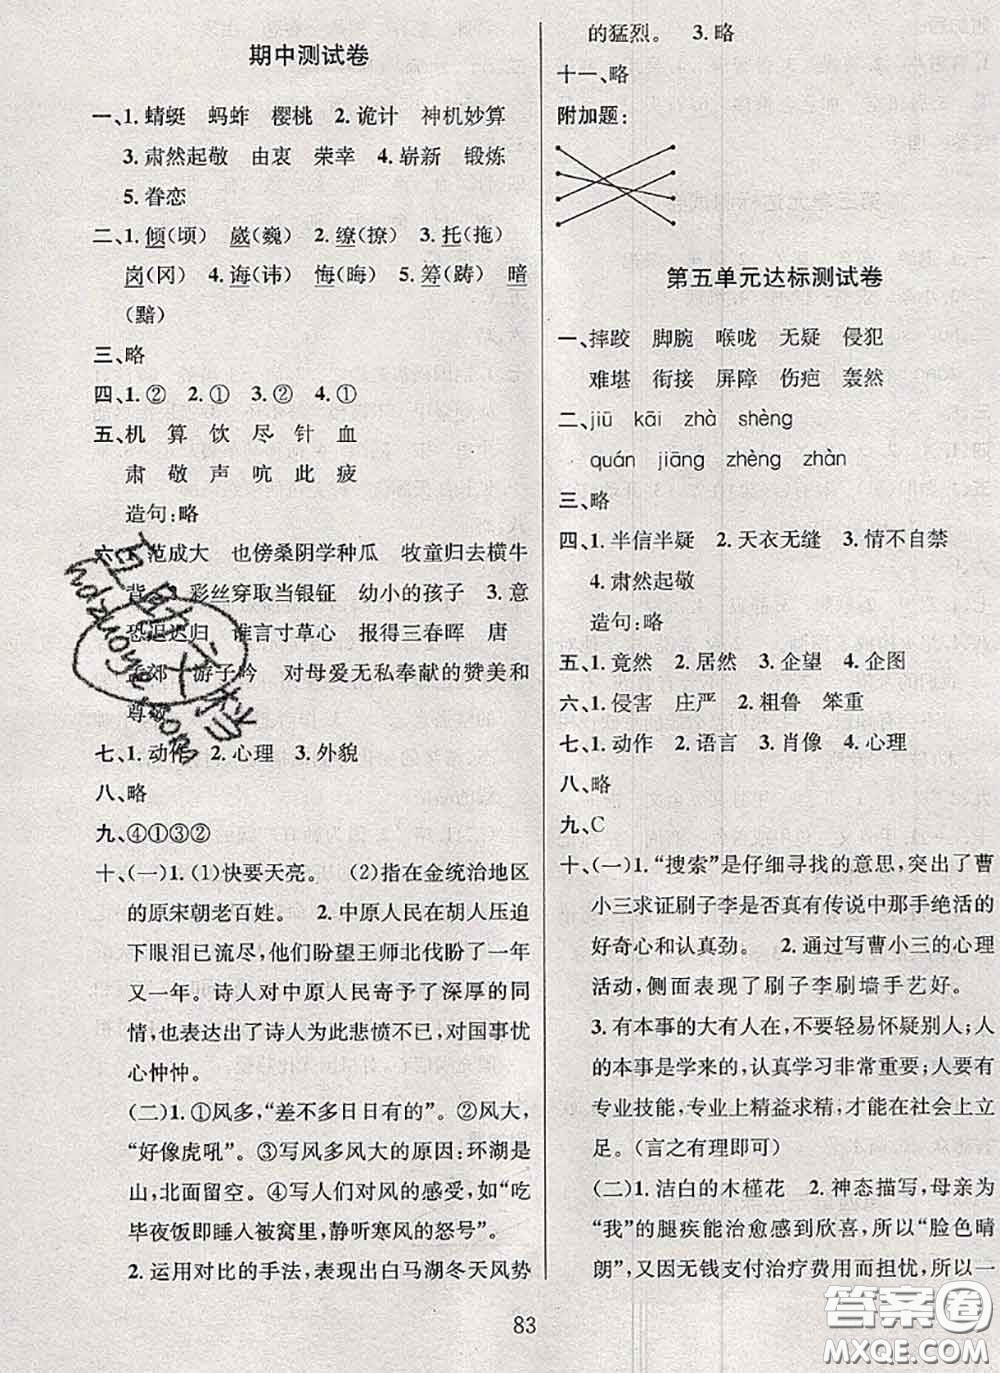 期中测试卷
一、1.蜻蜓 蚂蚱 樱桃 2.诡计 神机妙算
3.肃然起敬 由衷 荣幸 4.崭新 锻炼
5.眷恋
二、1.倾(顷) 崴(巍) 2.缭(撩) 3.托(拖)
岗(冈) 4.诲(讳) 悔(晦) 5.筹(踌) 暗
(黯)
三、略
四、1.② 2.① 3.② 4.①
五、机 算 饮 尽 针 血
肃 敬 声 吭 此 疲
造句:略
六、1.范成大 也傍桑阴学种瓜 牧童归去横牛
背 彩丝穿取当银钲 幼小的孩子 3.意
恐迟迟归 谁言寸草心 报得三春晖 唐
孟郊 游子吟 对母爱无私奉献的赞美和
尊敬
七、1.动作 2.心理 3.外貌
八、略
九、④①③②
十、(一)1.(1)快要天亮。 (2)指在金统治地区
的原宋朝老百姓。 2.中原人民在胡人压迫
下眼泪已流尽,他们盼望王师北伐盼了一年
又一年。诗人对中原人民寄予了深厚的同
情,也表达出了诗人为此悲愤不已,对国事忧
心忡忡。
(二)1.①风多,“差不多日日有的”。②风大,
“好像虎吼”。③写风多风大的原因:环湖是
山,北面留空。④写人们对风的感受,如“吃
毕夜饭即睡人被窝里,静听寒风的怒号”。
2.运用对比的手法,表现出白马湖冬天风势
的猛烈。 3.略
十一、略
附加题:
第五单元达标测试卷
一、摔跤 脚腕 喉咙 无疑 侵犯
难堪 衔接 屏障 伤疤 轰然
二、jiū kāi zhà shèng
quán jiāng zhèng zhàn
三、略
四、1.半信半疑 2.天衣无缝 3.情不自禁
4.肃然起敬
造句:略
五、1.竟然 2.居然 3.企望 4.企图
六、1.侵害 庄严 2.粗鲁 笨重
七、1.动作 2.语言 3.肖像 4.心理
八、略
九、C
十、(一)1.“搜索”是仔细寻找的意思,突出了曹
小三求证刷子李是否真有传说中那手绝活的
好奇心和认真劲。 2.通过写曹小三的心理
活动,侧面表现了刷子李刷墙手艺好。
3.有本事的大有人在,不要轻易怀疑别人;人
的本事是学来的,认真学习非常重要;人要有
专业技能,专业上精益求精,才能在社会上立
足。(言之有理即可)
(二)1.洁白的木槿花 2.神态描写,母亲为
“我”的腿疾能治愈感到欣喜,所以“脸色晴
朗”,又因无钱支付治疗费用而担忧,所以一
83
互助文档
hdzuoye.com
答案卷
MXQE.COM